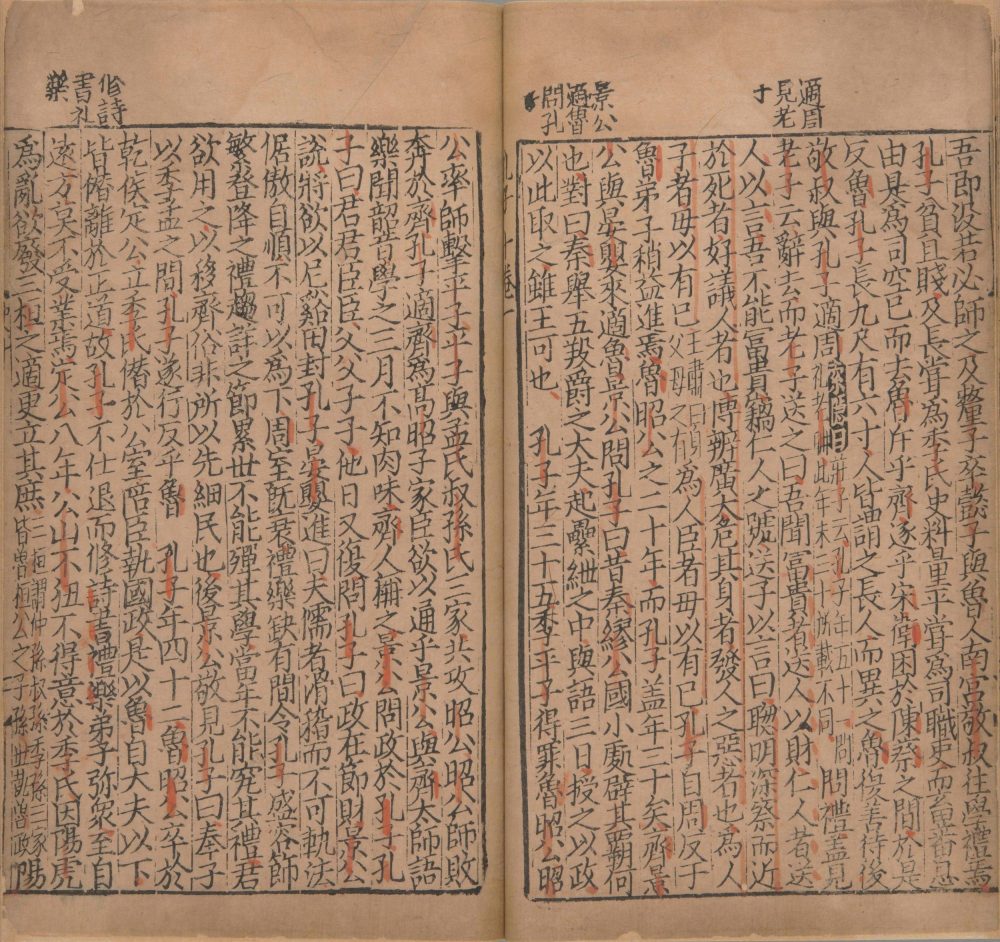 適周
見老
子
景公
適魯
問孔
子
吾即沒若必師之及釐子卒懿子與魯人南宮敬叔往學禮焉
孔子貧且賤及長甞為季氏史料量平甞為司職吏而畜蕃息
由是為司空已而去魯斥乎齊逐乎宋衛困於陳蔡之間於是
反魯孔子長九尺有六寸人皆謂之長人而異之魯復善待後
敬叔與孔子適周索隱曰莊子云孔子年五十一問禮蓋見
老子云辭去而老子送之曰吾聞富貴者送人以財仁人者送
人以言吾不能富貴竊仁人之號送子以言曰聦明深察而近
於死者好議人者也博辯廣大危其身者發人之惡者也為人
子者毋以有已王肅曰身父母之有為人臣者毋以有已孔子自周反于
魯弟子稍益進焉魯昭公之二十年而孔子盖年三十矣齊景
公與晏嬰來適魯景公問孔子曰昔秦繆公國小處辟其霸何
也對曰秦舉五羖爵之大夫起纍紲之中與語三日授之以政
以此取之雖王可也 孔子年三十五季平子得罪魯昭公昭
修詩
書礼
樂
公率師擊平子平子與孟氏叔孫氏三家共攻昭公昭公師敗
奔於齊孔子適齊為高昭子家臣欲以通乎景公與齊太師語
樂聞韶音學之三月不知肉味齊人稱之景公問政於孔子孔
子曰君君臣臣父父子子他日又復問孔子曰政在節財景公
說將欲以尼谿田封孔子晏嬰進曰夫儒者滑稽而不可軌法
倨傲自順不可以為下周室既衰禮樂缺有間今孔子盛容飾
繁登降之禮趨詳之節累世不能殫其學當年不能究其禮君
欲用之以移齊俗非所以先細民也後景公敬見孔子曰奉子
以季孟之間孔子遂行反乎魯 孔子年四十二魯昭公卒於
乾侯定公立季氏僭於公室陪臣執國政是以魯自大夫以下
皆僭離於正道故孔子不仕退而修詩書禮樂弟子弥衆至自
遠方莫不受業焉定公八年公山不狃不得意於季氏因陽虎
為亂欲廢三桓之適更立其庶三桓謂仲孫叔孫季孫三家皆魯桓公之子孫世執魯政陽